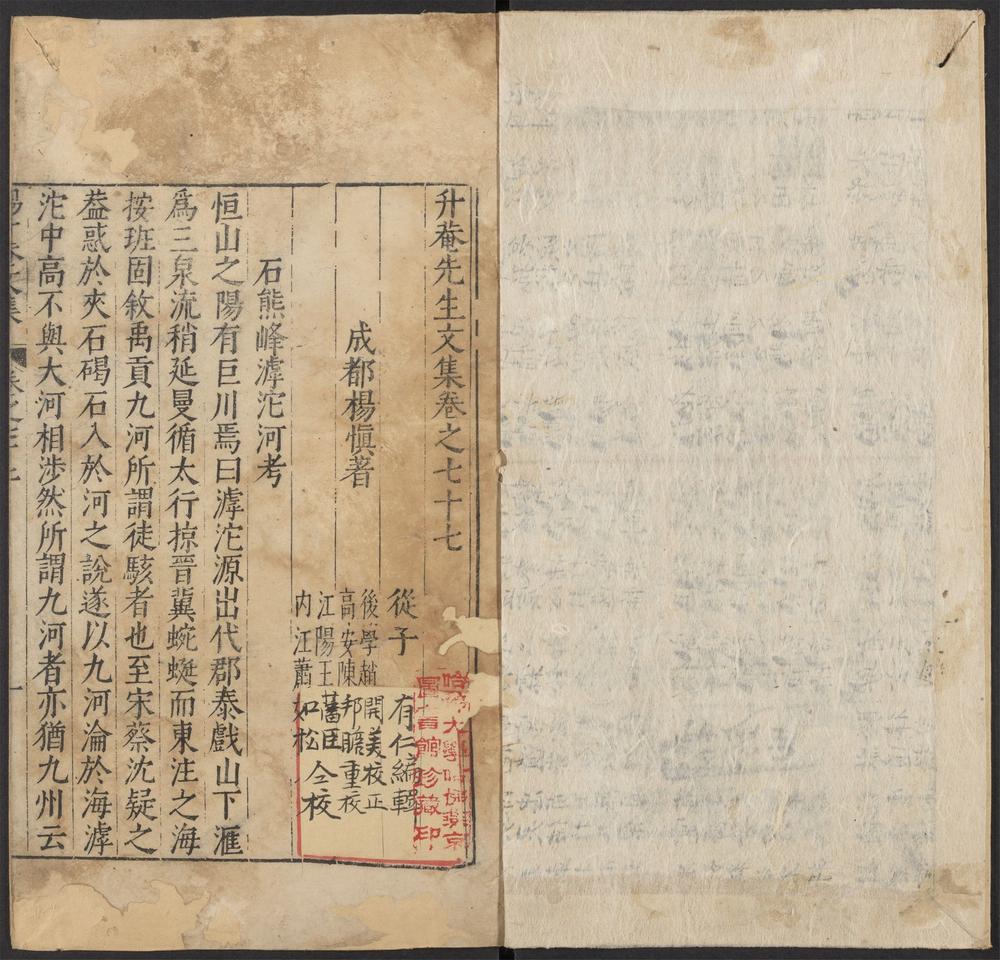 升菴先生文集卷之七十七
成都楊慎著
從子　有仁編輯
後學趙開美校正
高安陳邦瞻重校
江陽王藩臣
内江蕭如松仝校
石熊峰滹沱河考
恒山之陽有巨川焉曰滹沱源出代郡泰戲山下滙
爲三泉流稍延曼循太行掠晉冀蜿蜒而東注之海
按班固敘禹貢九河所謂徒駭者也至宋蔡沈疑之
葢惑於夾石碣石入於河之說遂以九河淪於海滹
沱中高不與大河相涉然所謂九河者亦猶九州云
哈佛大學哈佛燕京
圖書館珍藏印